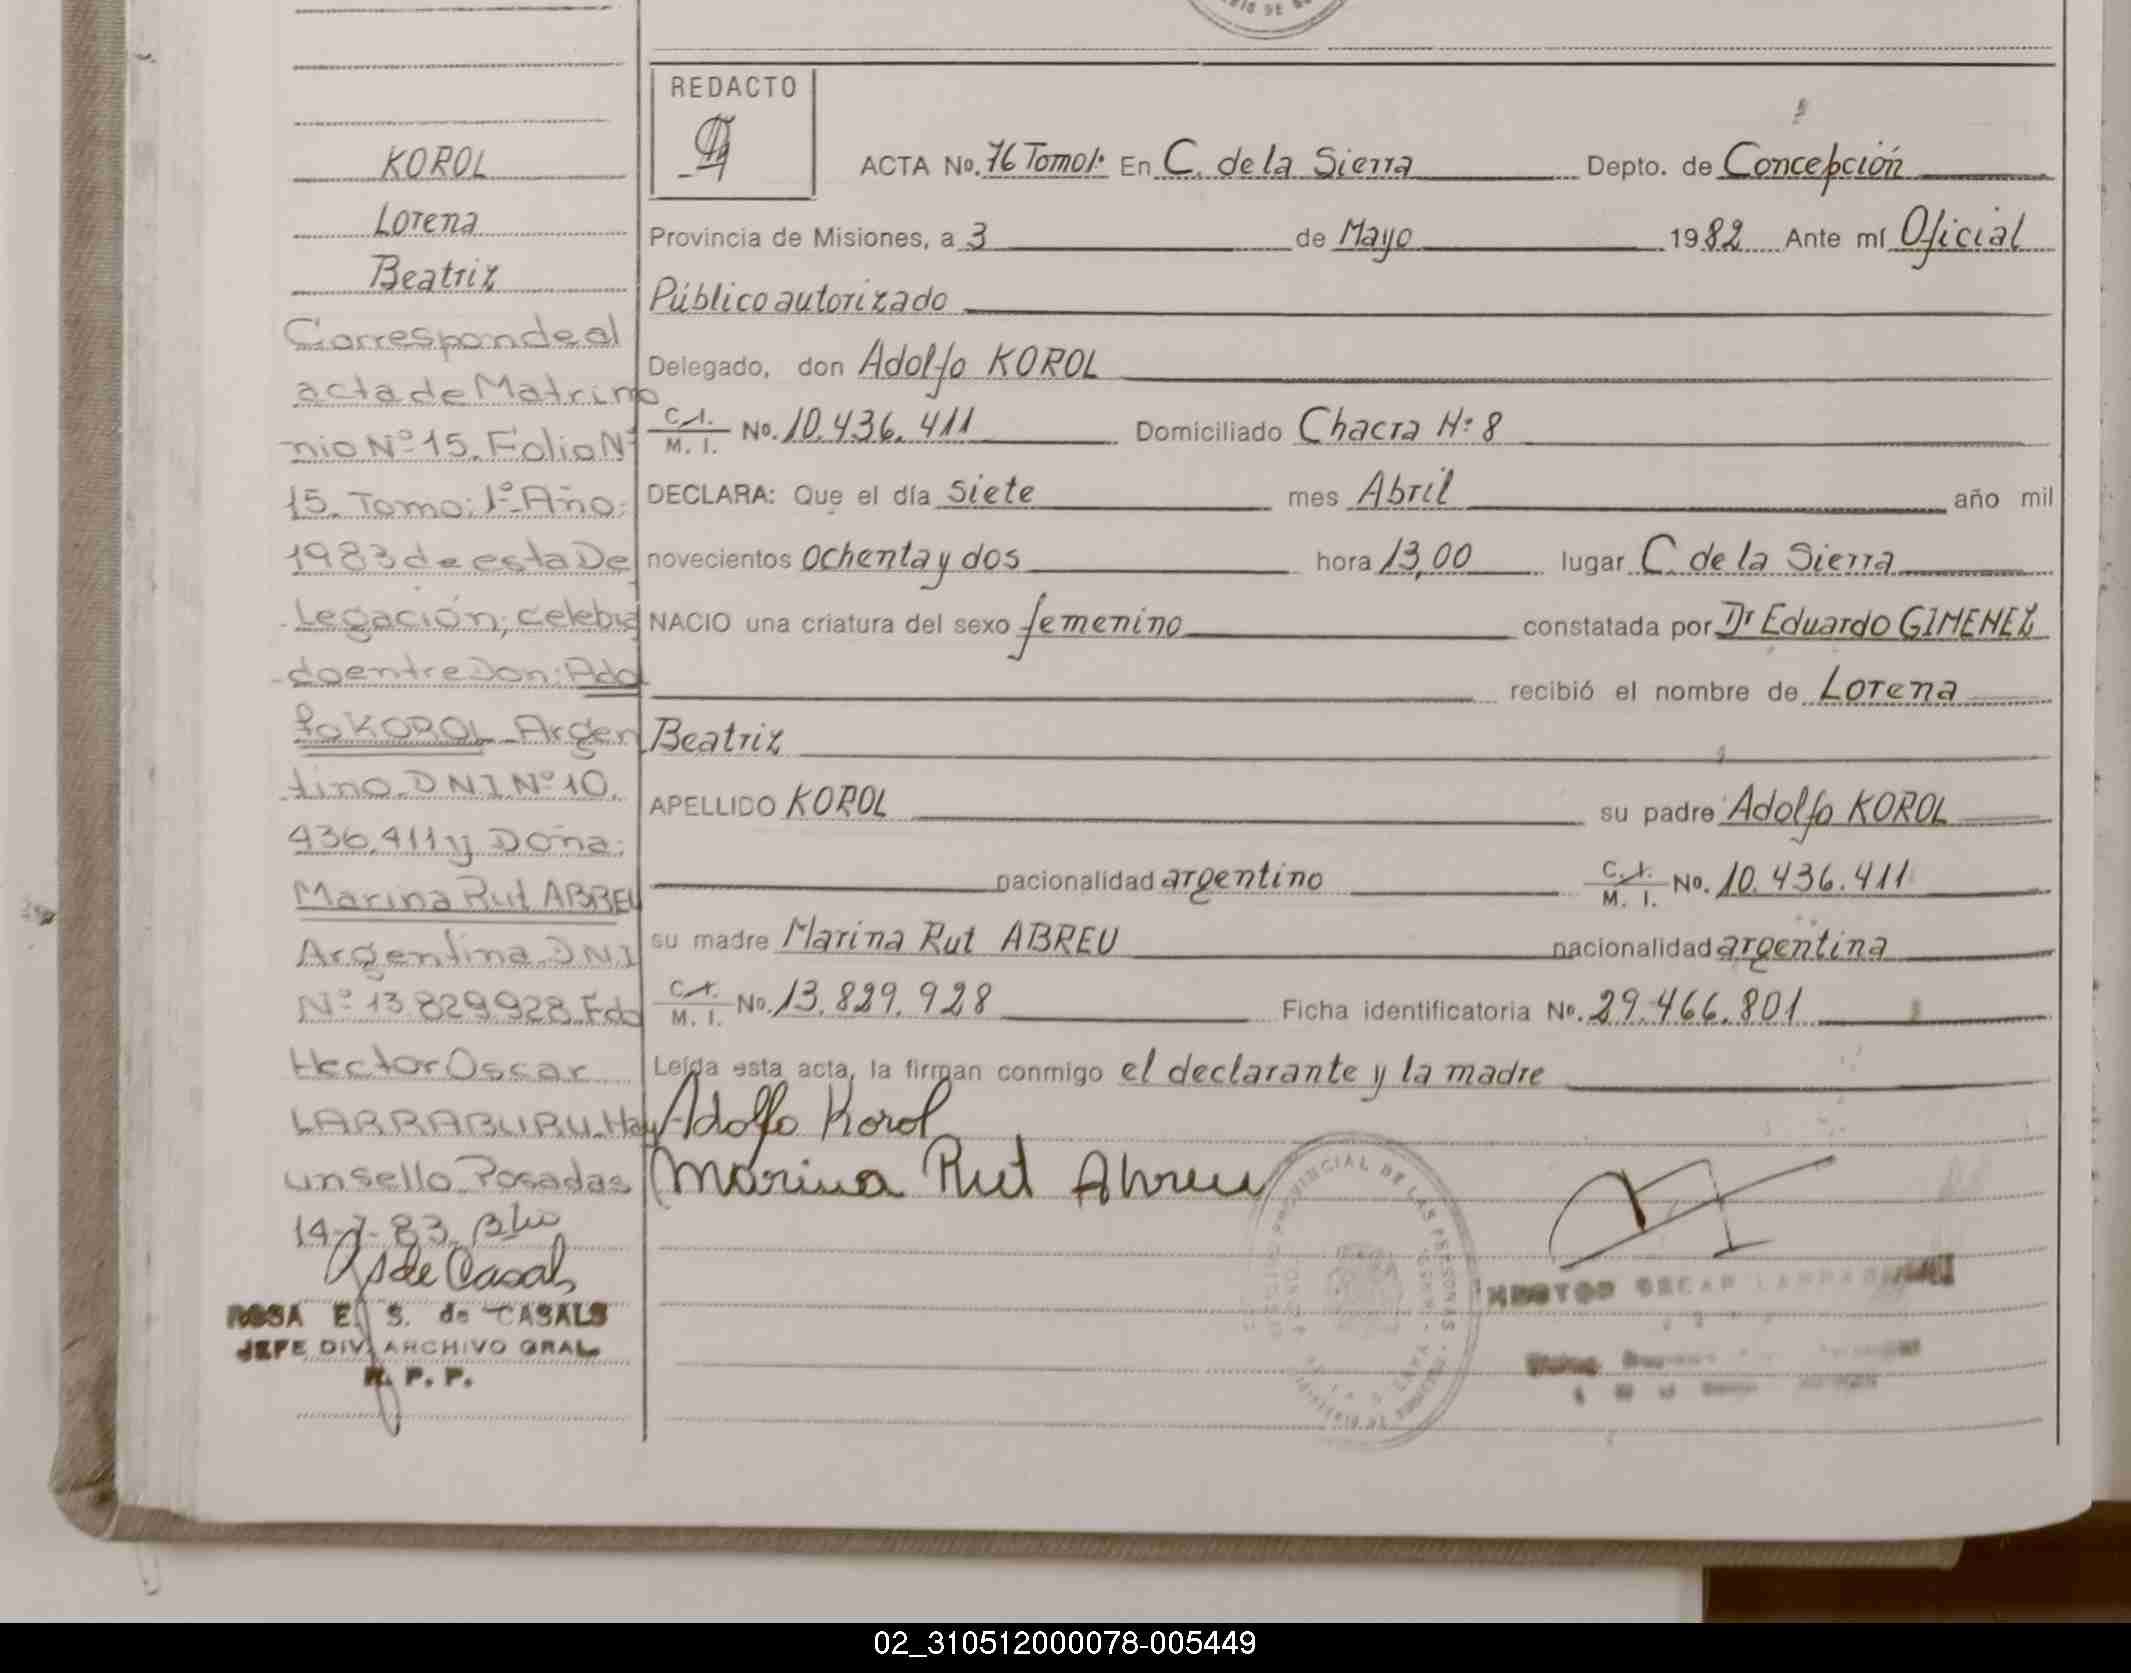 KOROL
Lorena
Beatriz
Corresponde al
acta de Matrimo
nio Nº 15. Folio Nº
15. Tomo: 1º Año:
1983 de esta De
legación; celebra
do entre Don: Adol
fo KOROL Argen
tino DNI Nº 10.
436.411 y Doña:
Marina Rut ABREU
Argentina DNI
Nº 13.829.928. Fdo
Hector Oscar
LARRABURU. Hay
un sello Posadas
14-7-83.
R S de Casals
ROSA E. S. de CASALS
JEFE DIV. ARCHIVO GRAL
R. P. P.
REDACTO
ACTA No. 76 Tomo 1º En C. de la Sierra Depto. de Concepción
Provincia de Misiones, a 3 de Mayo 1982 Ante mí Oficial
Público autorizado
Delegado, don Adolfo KOROL
C.I. M. I. No. 10.436.411 Domiciliado Chacra Nº 8
DECLARA: Que el día siete mes Abril año mil
novecientos ochenta y dos hora 13,00 lugar C. de la Sierra
NACIO una criatura del sexo femenino constatada por Dr Eduardo GIMENEZ
recibió el nombre de Lorena
Beatriz
APELLIDO KOROL su padre Adolfo KOROL
nacionalidad argentino C.I. M. I. No. 10.436.411
su madre Marina Rut ABREU nacionalidad argentina
C.I. M. I. No. 13.829.928 Ficha identificatoria No. 29.466.801
Leída esta acta, la firman conmigo el declarante y la madre
Adolfo Korol
Marina Rut Abreu
PROVINCIAL DE LAS PERSONAS
HECTOR OSCAR LARRABURU
02_310512000078-005449